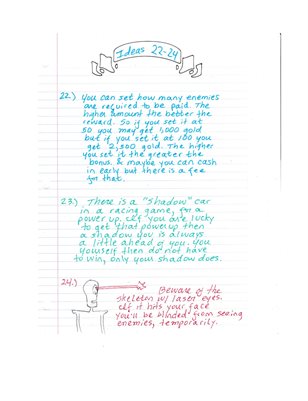 Ideas 22-24
22.) You can set how many enemies
are required to be paid. The
higher amount the better the
reward. So if you set it at
50 you may get 1,000 gold
but if you set it at 100 you
get 2,500 gold. The higher
you set it the greater the
bonus. & maybe you can cash
in early but there is a fee
for that.
23.) There is a "shadow" car
in a racing game, for a
power up. If you are lucky
to get that powerup then
a shadow you is always
a little ahead of you. You
yourself then do not have
to win, only your shadow does.
24.) Beware of the
skeleton w/ laser eyes.
If it hits your face
you'll be blinded from seeing
enemies, temporarily.